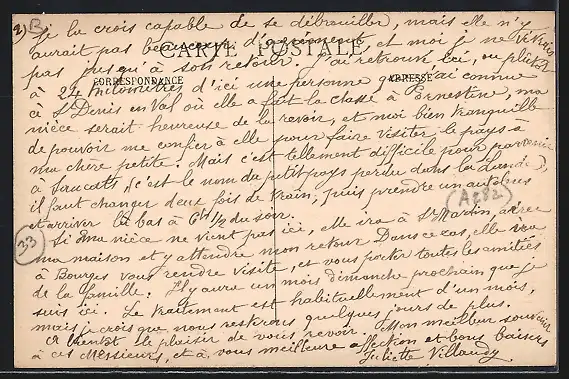 2) Je la crois capable de se débrouiller, mais elle n'y
CARTE POSTALE
aurait pas beaucoup d'agrément, et moi je ne vivrais
pas jusqu'à son retour. J'ai retrouvé ici, ou plutôt
CORRESPONDANCE
ADRESSE
à 24 kilomètres d'ici une personne que j'ai connue
à St Denis en Val où elle a fait la classe à Ernestine, ma
nièce serait heureuse de la revoir, et moi bien tranquille
de pouvoir me confier à elle pour faire visiter le pays à
ma chère petite. Mais c'est tellement difficile pour parvenir
à Saucats, (c'est le nom du petit pays perdu dans la Lande),
il faut changer deux fois de train, puis prendre un autobus
et arriver là bas à 6h 1/2 du soir.
A282
Si ma nièce ne vient pas ici, elle ira à St Martin, aérer
33
ma maison et y attendre mon retour. Dans ce cas, elle ira
à Bourges vous rendre visite, et vous porter toutes les amitiés
de la famille. Il y aura un mois dimanche prochain que je
suis ici. Le traitement est habituellement d'un mois,
mais je crois que nous resterons quelques jours de plus.
A bientôt le plaisir de vous revoir. Mon meilleur souvenir
à ces Messieurs, et à vous meilleure affection et bons baisers
Juliette Villaudy